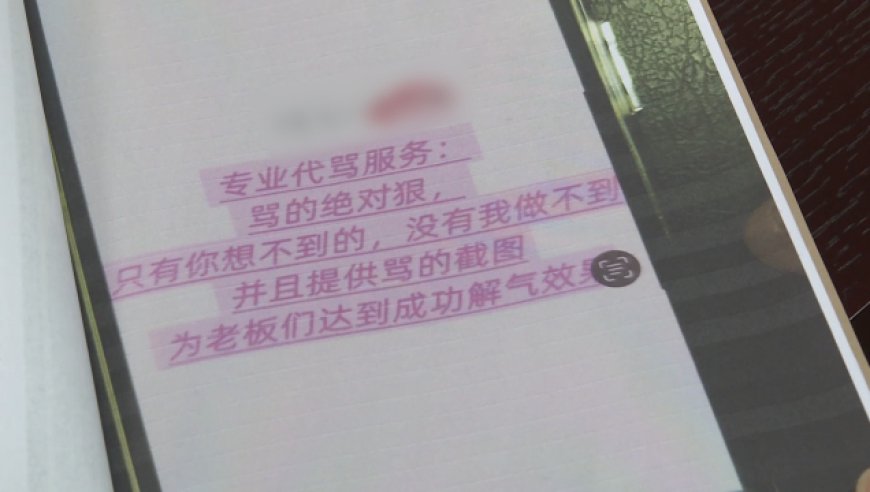 专业代骂服务：
骂的绝对狠，
只有你想不到的，没有我做不到
并且提供骂的截图
为老板们达到成功解气效果